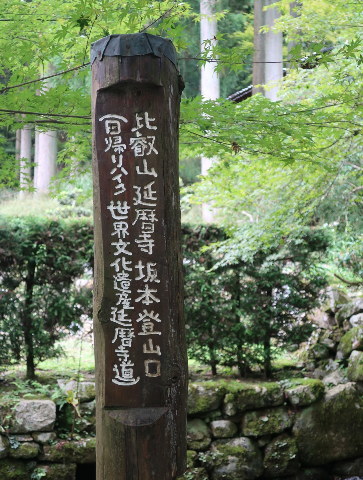 比叡山延暦寺坂本登山口
(日帰りハイク 世界文化遺産延暦寺道